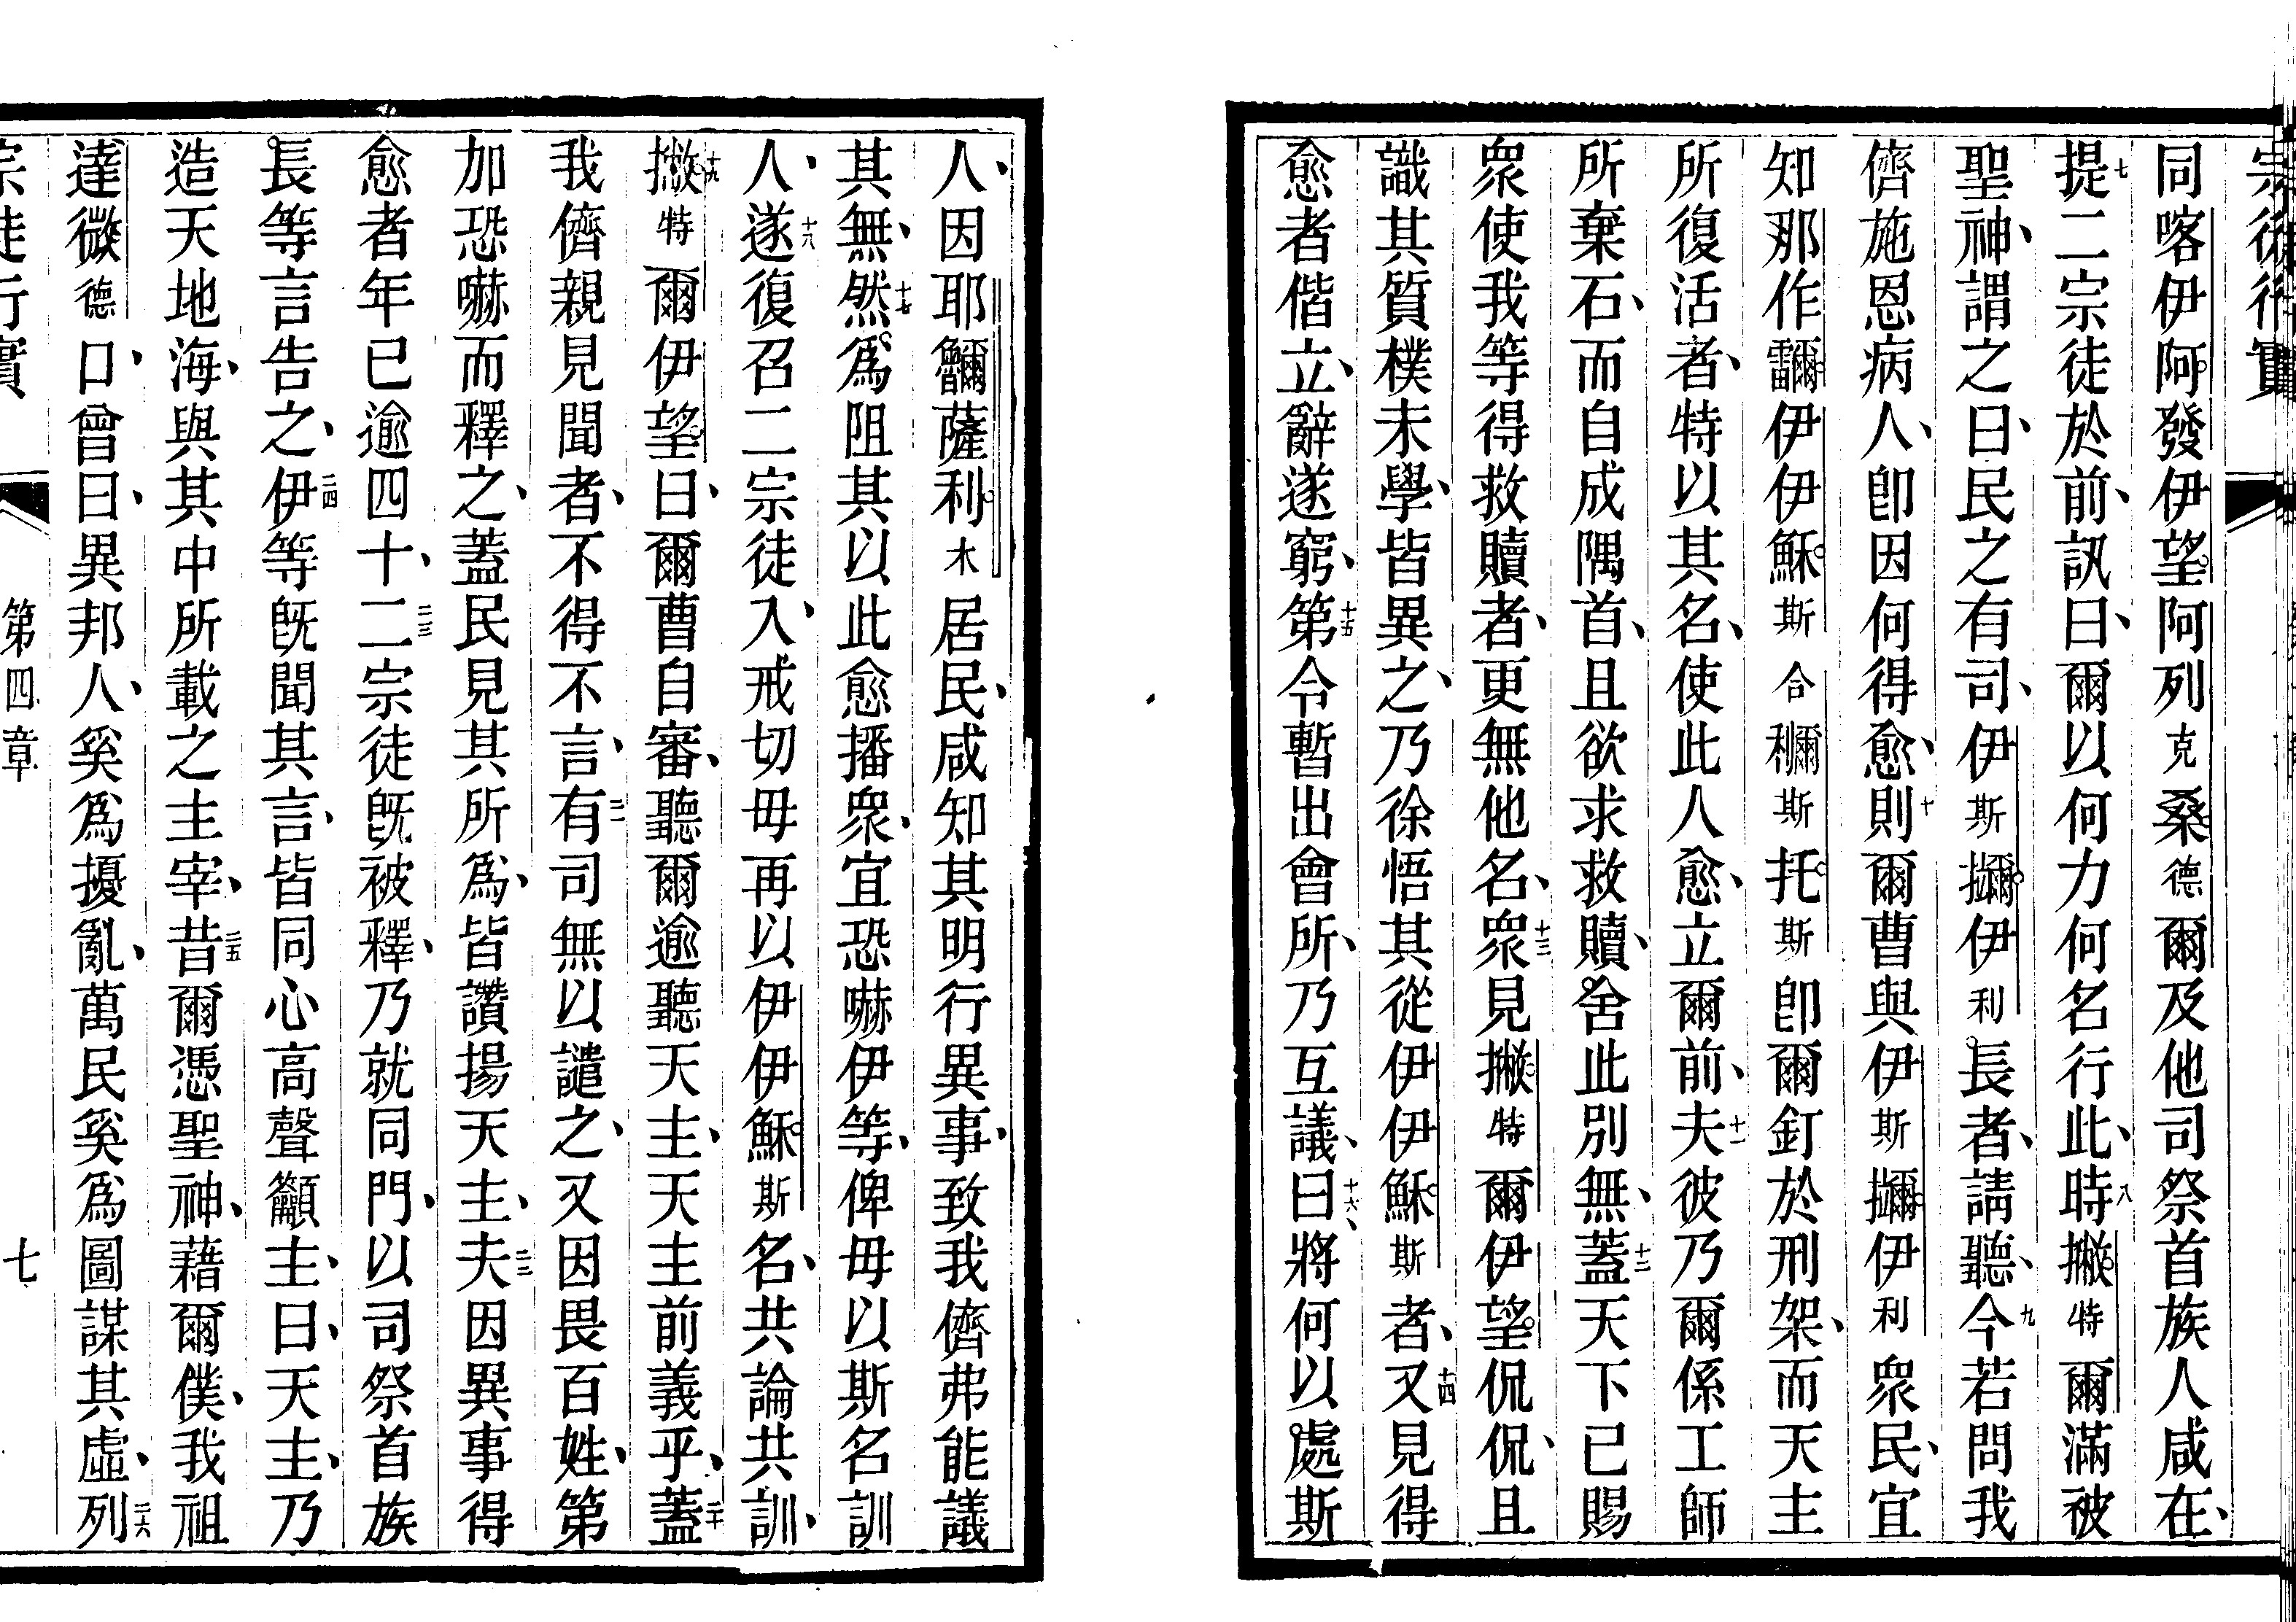 宗徒行實
同喀伊阿發伊望阿列克桑德爾及他司祭首族人咸在、
七提二宗徒於前、訊曰、爾以何力何名行此、八時撇特爾滿被
聖神、謂之曰、民之有司、伊斯攦伊利長者、請聽、九今若問我
儕施恩病人、卽因何得愈、十則爾曹與伊斯攦伊利眾民、宜
知那作伊伊穌斯合斯托斯卽爾釘於刑架、而天主
所復活者、特以其名、使此人愈、立爾前、十一夫彼乃爾係工師
所棄石、而自成隅首、且欲求救贖、舍此別無、十二蓋天下已賜
眾使我等得救贖者、更無他名、十三眾見撇特爾伊望侃侃、且
識其質樸未學、皆異之、乃徐悟其從伊伊穌斯者、十四又見得
愈者偕立、辭遂窮、十五第令暫出會所、乃互議、十六曰、將何以處斯
人、因耶薩利木居民、咸知其明行異事、致我儕弗能議
其無、十七然爲阻其以此愈播眾、宜恐嚇伊等、俾毋以斯名訓
人、十八遂復召二宗徒入、戒切毋再以伊伊穌斯名、共論共訓、
十九撇特爾伊望曰、爾曹自審、聽爾逾聽天主、天主前義乎、二十蓋
我儕親見聞者、不得不言、二一有司無以譴之、又因畏百姓、第
加恐嚇而釋之、蓋民見其所爲、皆讚揚天主、二二夫因異事得
愈者年已逾四十、二三二宗徒旣被釋、乃就同門、以司祭首族
長等言告之、二四伊等旣聞其言、皆同心高聲籲主、曰、天主、乃
造天地海、與其中所載之主宰、二五昔爾憑聖神、藉爾僕、我祖
達微德口、曾曰、異邦人、奚爲擾亂、萬民奚爲圖謀其虛、二六列
宗徒行實 第四章 七